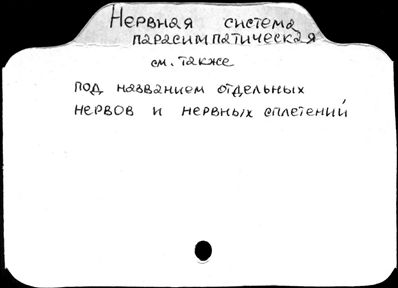 Нервная система
парасимпатическая
см. также
под названием отдельных
нервов и нервных сплетений